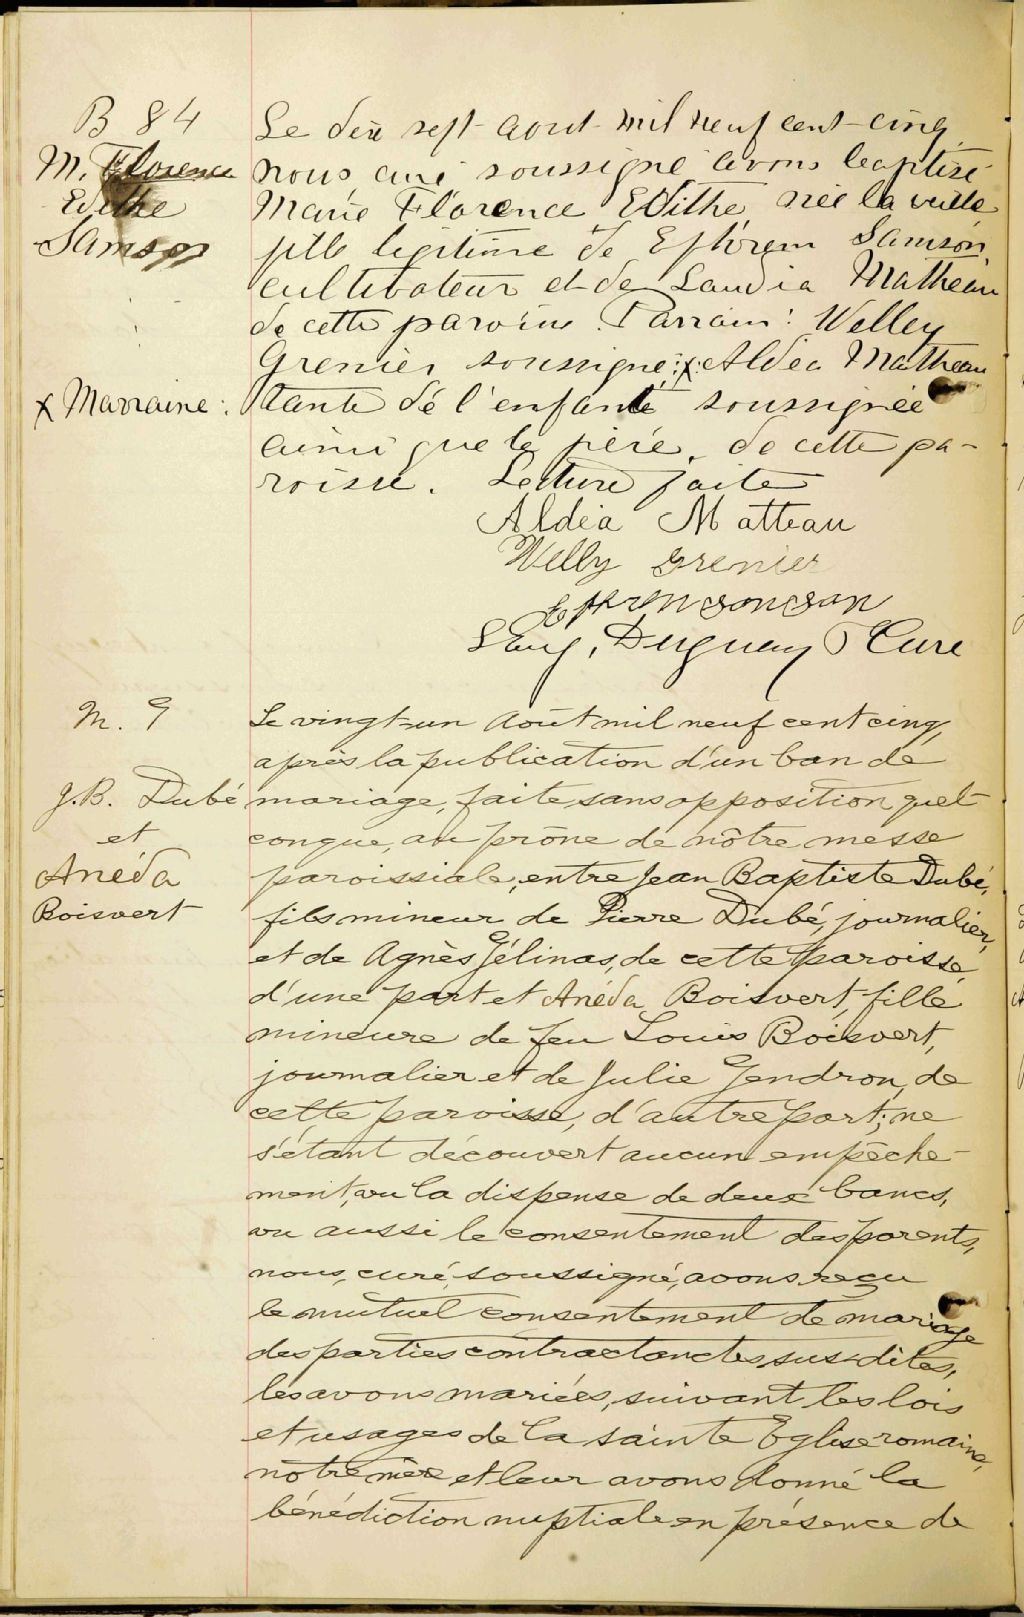 B 84
M. Florence
Edithe
Samson
Le dix sept aout mil neuf cent-cinq
nous curé soussigné avons baptisé
Marie Florence Edithe née la veille
fille légitime de Ephrem Samson
cultivateur et de Laudia Matheau
de cette paroisse. Parrain: Welley
Grenier soussigné; x Aldea Matheau
x Marraine:
tante de l'enfant soussignée
ainsi que le père, de cette pa-
roisse. Lecture faite
Aldéa Matteau
Welly Grenier
Ephrem Sanson
Duguay Ptre Curé
M. 9
J.B. Dubé
et
Anéda
Boisvert
Le vingt-un août mil neuf cent cinq,
après la publication d'un ban de
mariage, faite sans opposition quel-
conque, au prône de nôtre messe
paroissiale, entre Jean Baptiste Dubé,
fils mineur de Pierre Dubé, journalier,
et de Agnès Gélinas, de cette paroisse
d'une part et Anéda Boisvert, fille
mineure de feu Louis Boisvert,
journalier et de Julie Gendron, de
cette paroisse, d'autre part; ne
s'étant découvert aucun empêche-
ment, vu la dispense de deux bancs,
vu aussi le consentement des parents,
nous, curé, soussigné, avons reçu
le mutuel consentement de mariage
des parties contractantes sus-dites,
les avons mariés, suivant les lois
et usages de la sainte Eglise romaine,
nôtre mère et leur avons donné la
bénédiction nuptiale en présence de